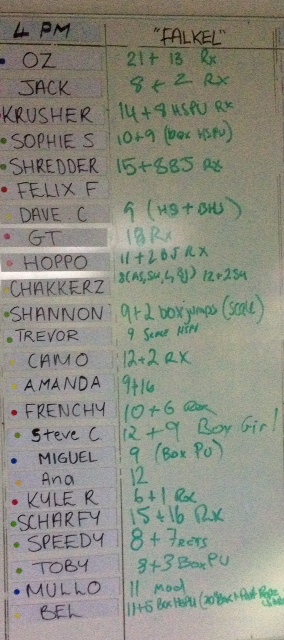 4 PM "FALKEL"
OZ 21 + 13 Rx
JACK 8 + 2 Rx
KRUSHER 14+8 HSPU Rx
SOPHIE S 10+9 (box HSPU)
SHREDDER 15+8BJ Rx
FELIX F
DAVE C 9 (HS + BHS)
GT 18 Rx
HOPPO 11 + 2 BJ RX
CHAKKERZ 12+2SU
SHANNON 9+2 box jumps (scale)
TREVOR 9 Some HSPU
CAMO 12+2 RX
AMANDA 9+16
FRENCHY 10+6
Steve C 12 + 9 Box Girl
MIGUEL 9 (Box PU)
Ana 12
KYLE R 6+1 Rx
SCHARFY 15+16 Rx
SPEEDY 8 + 7
TOBY 8+3 Box PU
MULLO 11 mod
BEL 11+6 Box HSPU